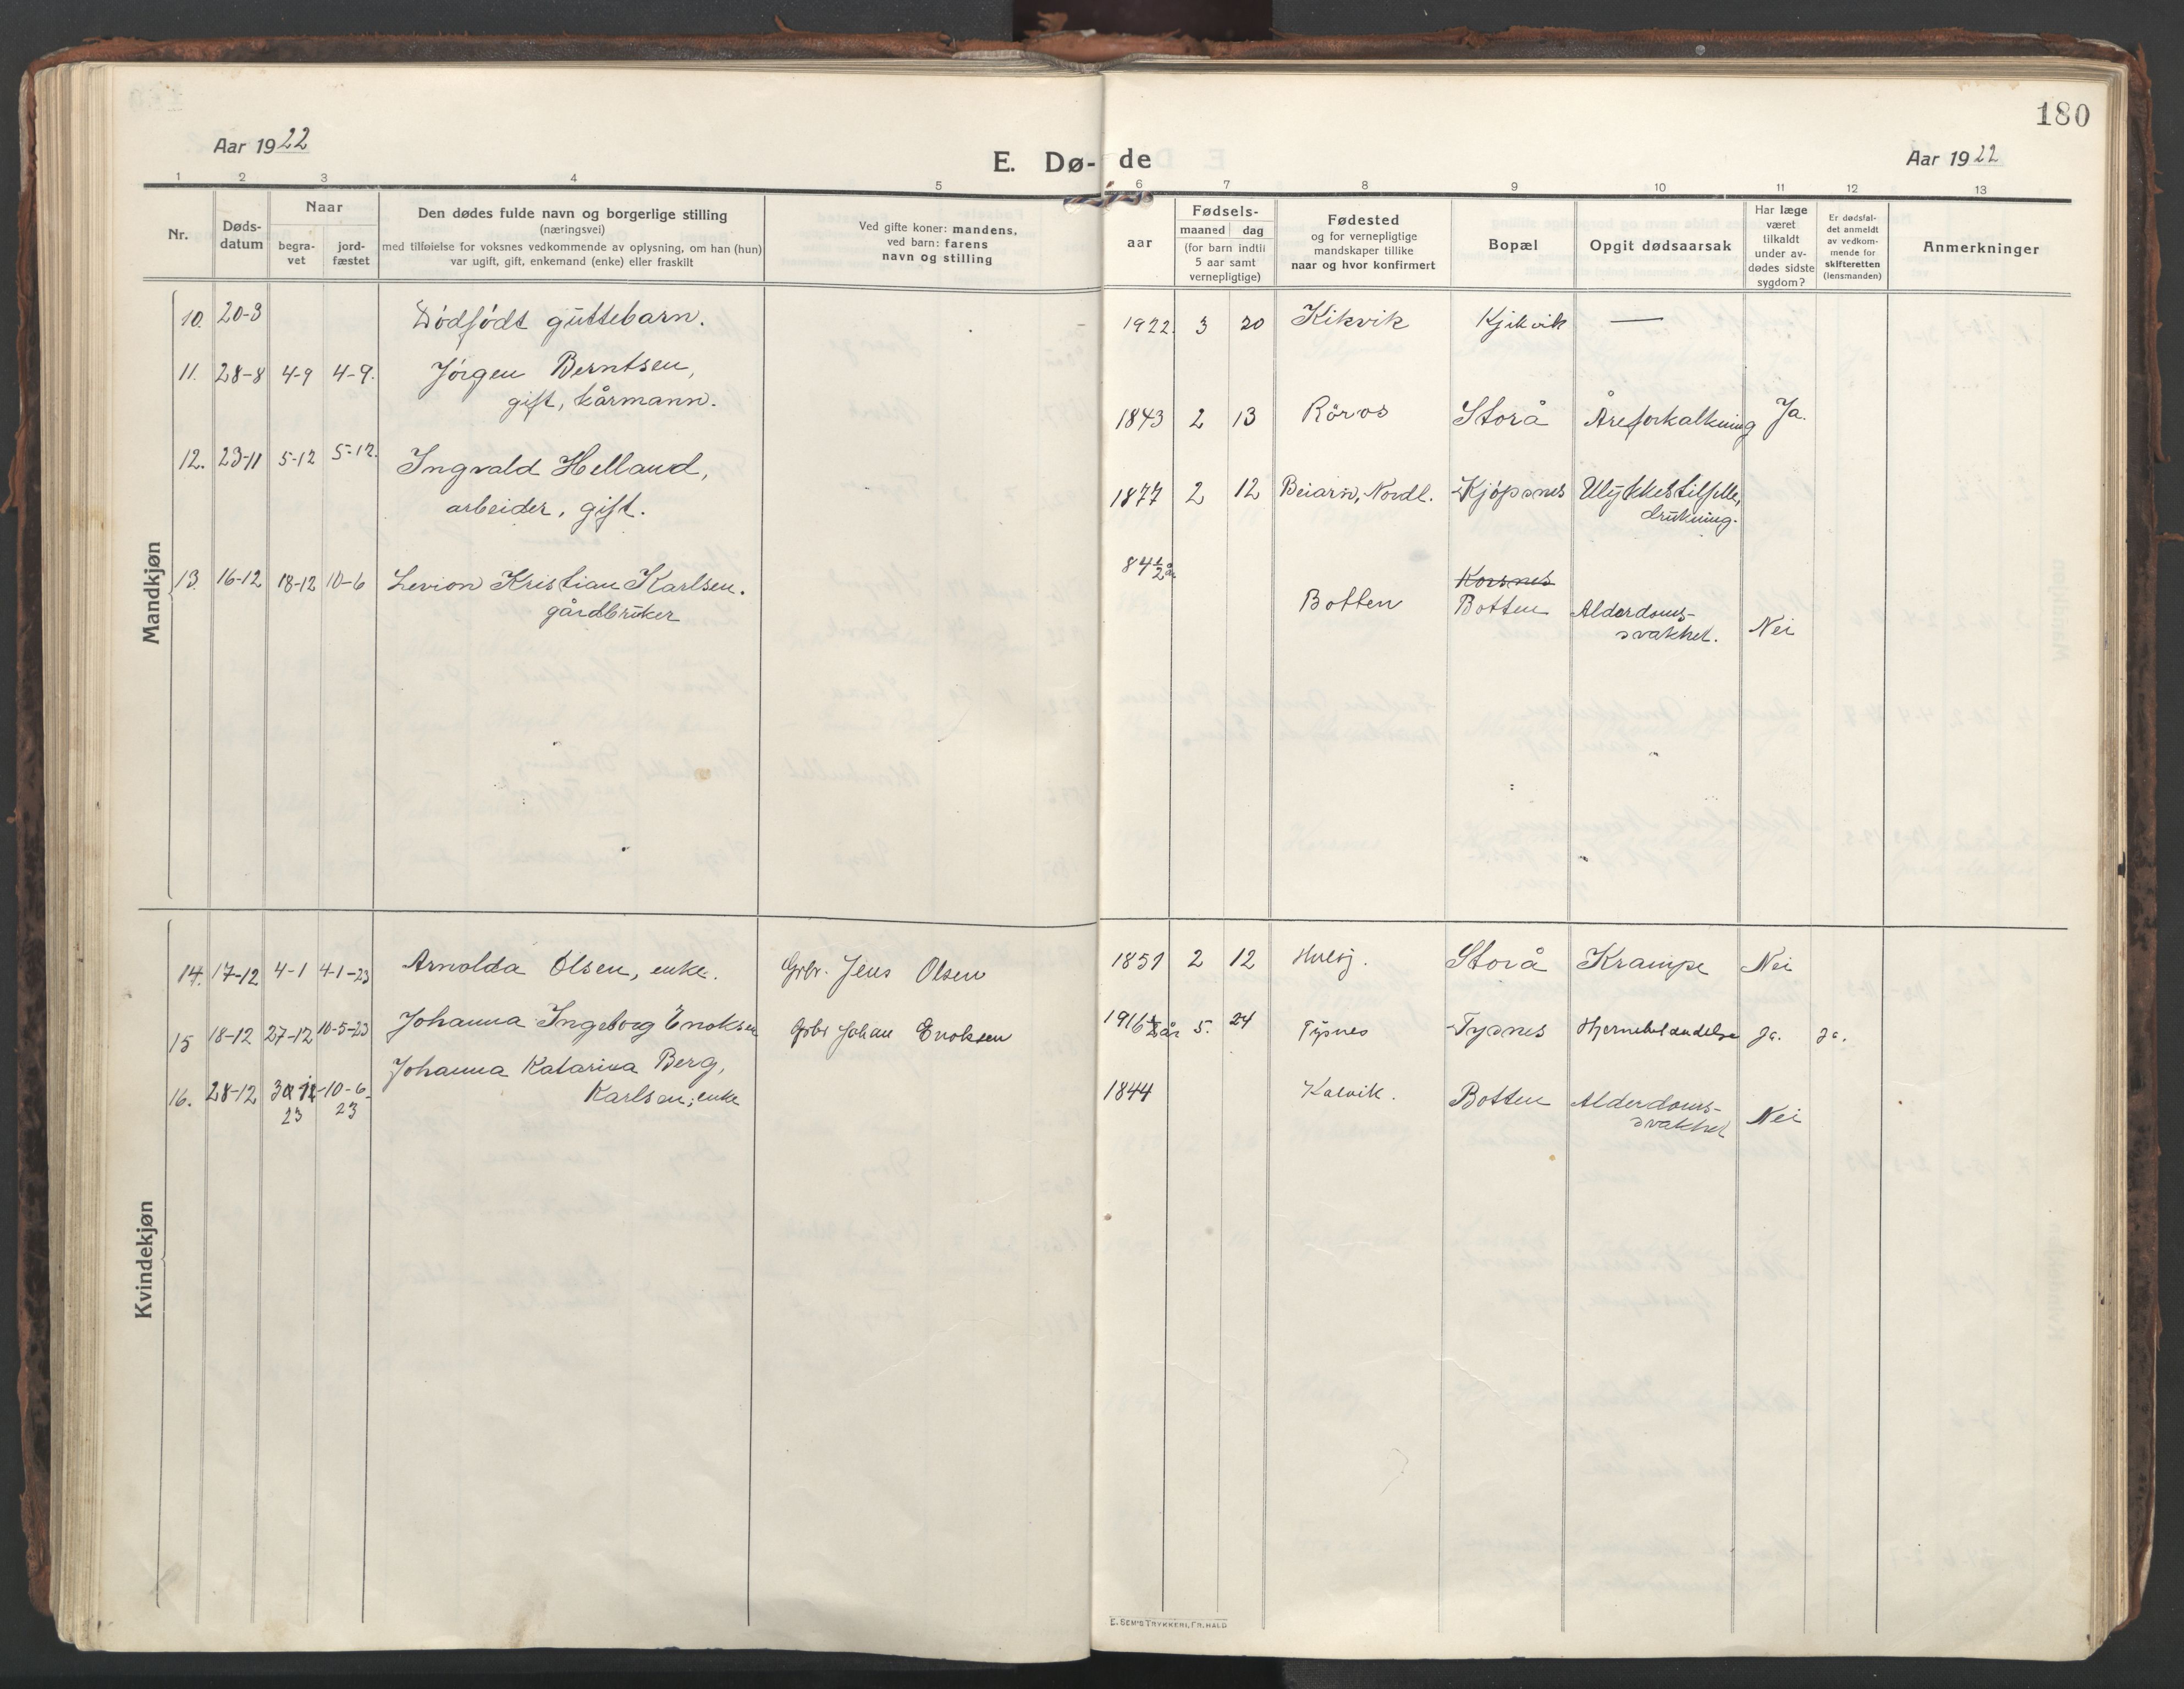 180
Aar 1922
E. Dø-de
Aar 1922
1 2 3 4 5 6 7 8 9 10 11 12 13
Nr.
Døds-
datum
Naar
begra-
vet
jord-
fæstet
Den dødes fulde navn og borgerlige stilling
(næringsvei)
med tilføielse for voksnes vedkommende av oplysning, om han (hun)
var ugift, gift, enkemand (enke) eller fraskilt
Ved gifte koner: mandens,
ved barn: farens
navn og stilling
aar
Fødsels-
maaned dag
(for barn indtil
5 aar samt
vernepligtige)
Fødested
og for vernepligtige
mandskaper tillike
naar og hvor konfirmert
Bopæl
Opgit dødsaarsak
Har læge
været
tilkaldt
under av-
dødes sidste
sygdom?
Er dødsfal-
det anmeldt
av vedkom-
mende for
skifteretten
(lensmanden)
Anmerkninger
Mandkjøn
10. 20-3 Dödfödt guttebarn. 1922. 3 20 Kikvik Kjikvik —
11. 28-8 4-9 4-9. Jörgen Berntsen,
gift, kårmann. 1843 2 13 Röros Storå Åreforkalkning Ja.
12. 23-11 5-12 5-12. Ingvald Helland,
arbeider, gift. 1877 2 12 Beiarn, Nordl. Kjöpsnes Ulykkestilfelle,
drukning.
13 16-12 18-12 10-6 Levion Kristian Karlsen.
gårdbruker 84 1/2 år Botten Korsnes
Botten Alderdoms-
svakhet. Nei
Kvindekjøn
14. 17-12 4-1 4-1-23 Arnolda Olsen, enke. Grbr. Jens Olsen 1851 2 12 Storå Krampe Nei
15 18-12 27-12 10-5-23 Johanna Ingeborg Enoksen Grbr Johan Enoksen 5. 24 Tysnes Tysnes Ja. Ja.
16. 28-12 10-6-
23 23
Johanna Katarina Berg,
Karlsen, enke 1844 Kalvik. Botten Alderdoms-
svakhet Nei
E. SEM'S TRYKKERI, FR. HALD